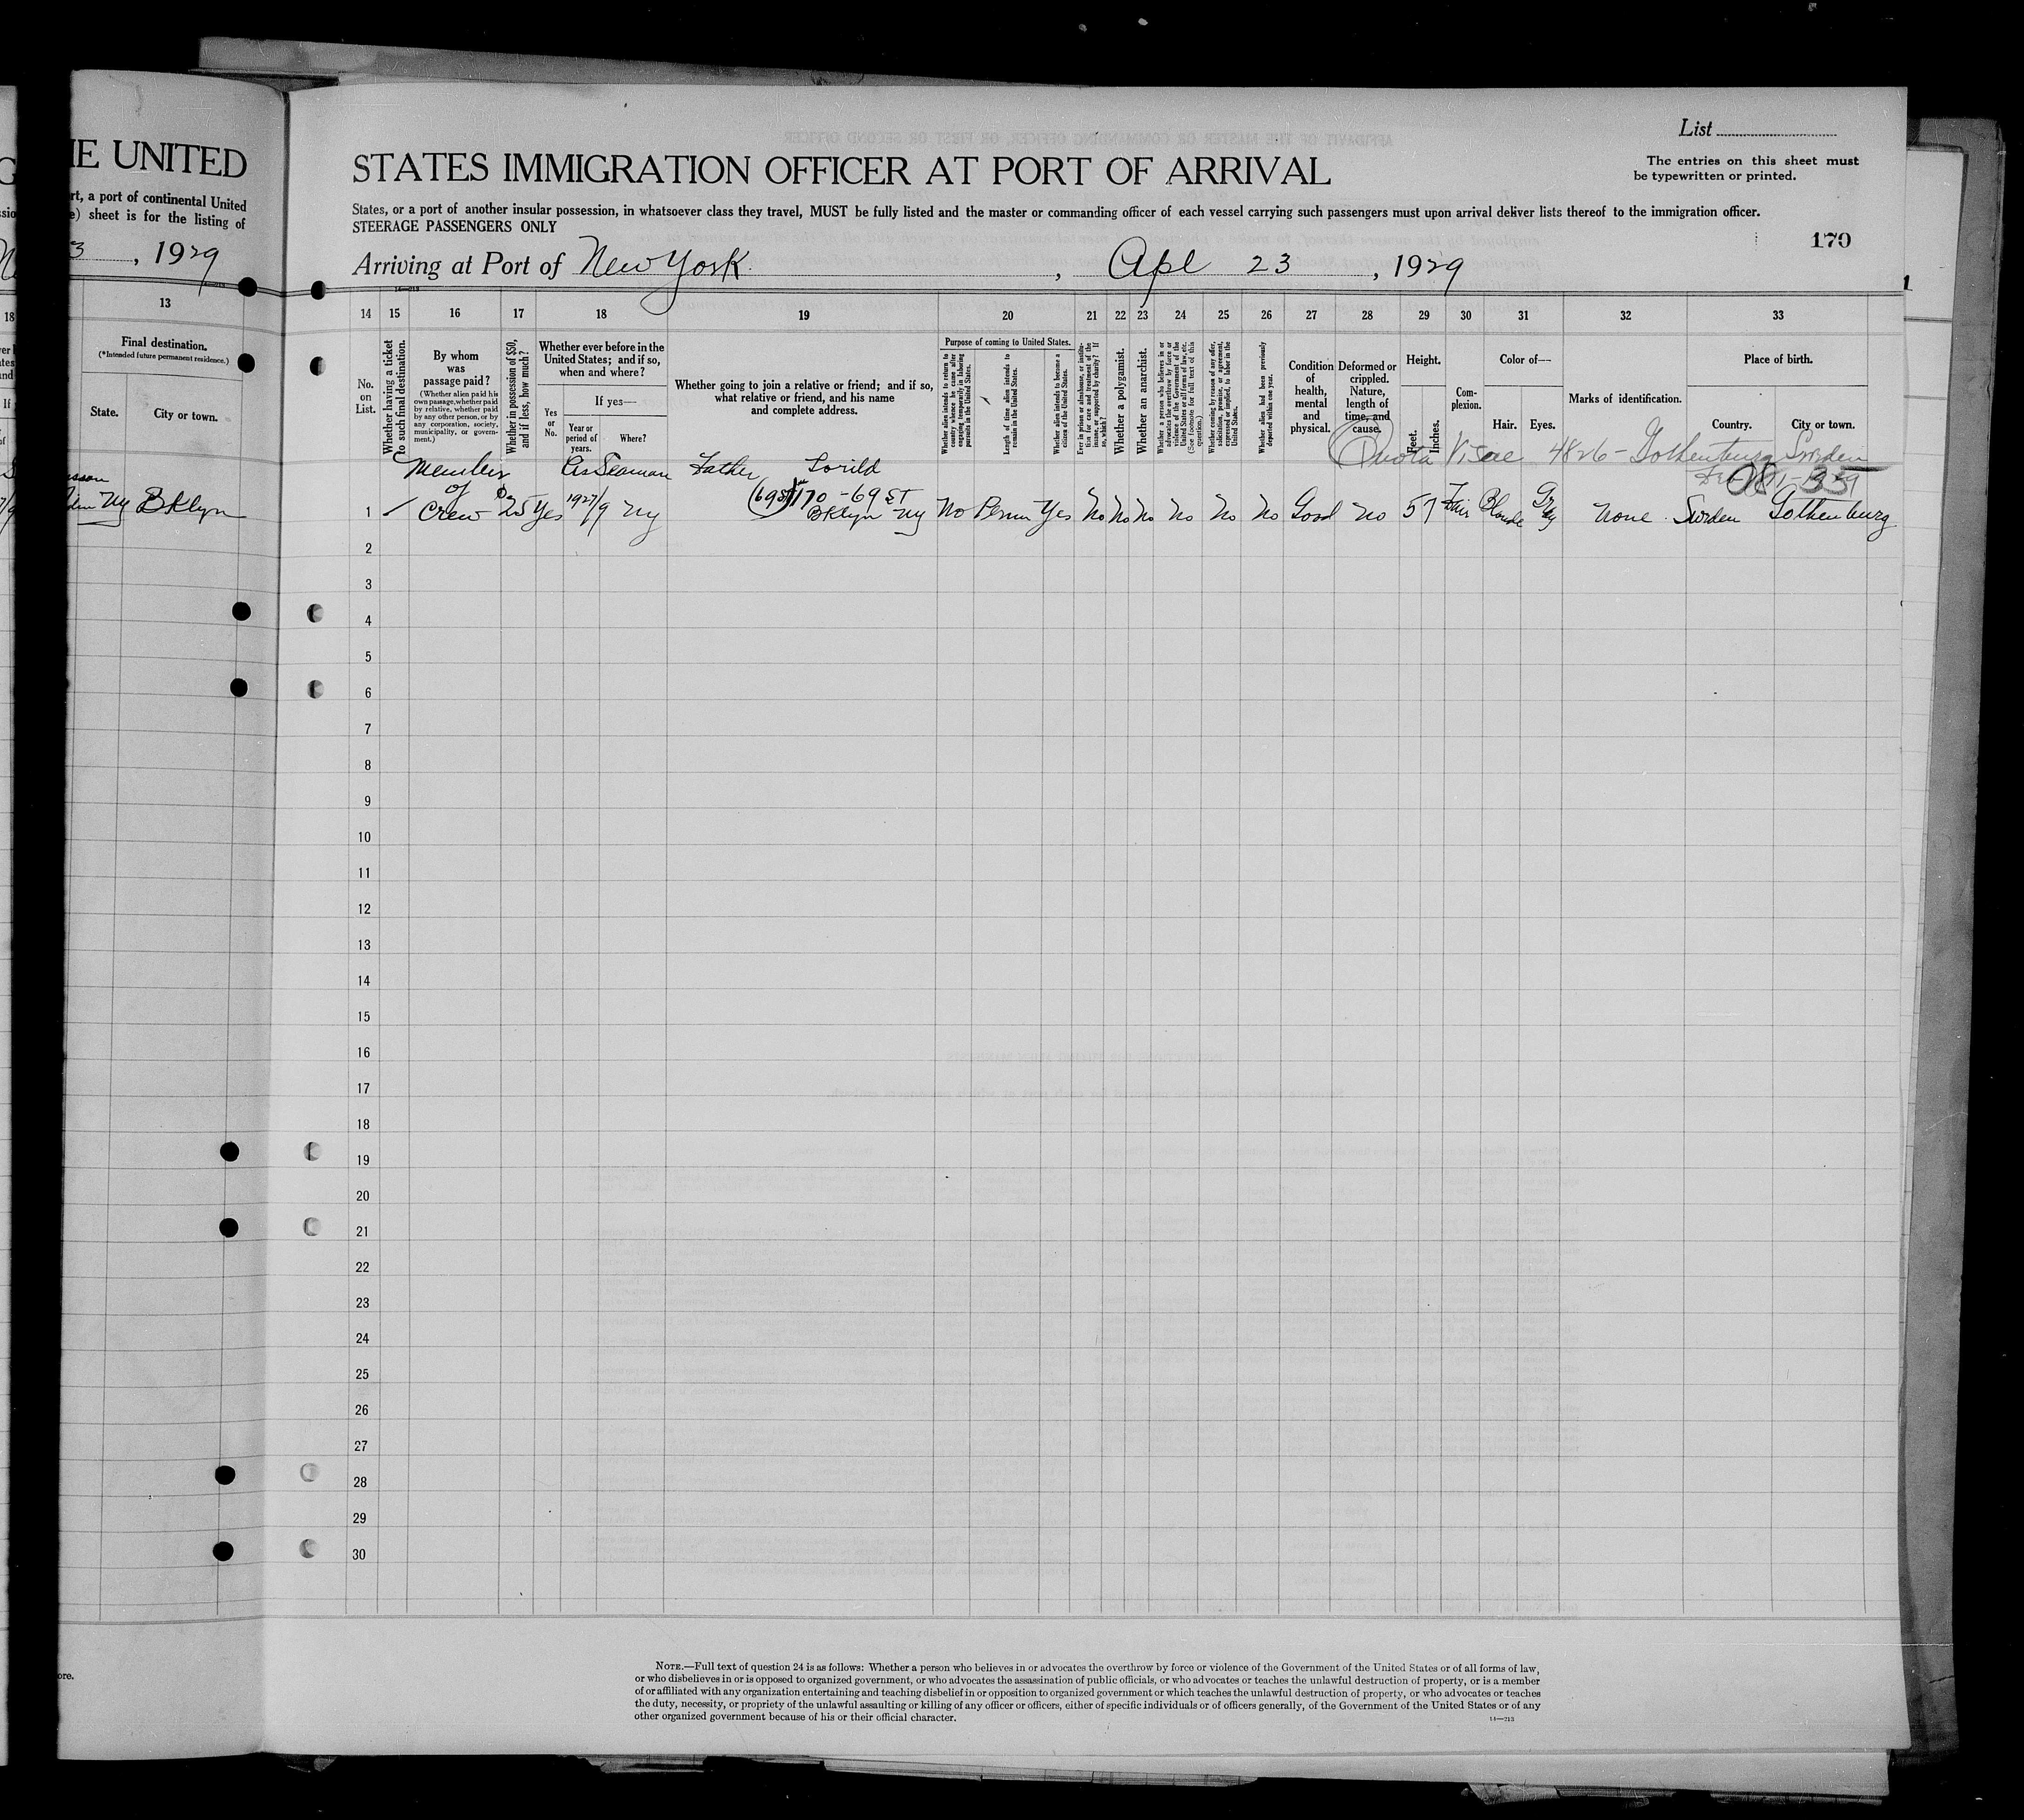 IE UNITED
rt, a port of continental United
e) sheet is for the listing of
3, 1929
13
Final destination.
(*Intended future permanent residence.)
State.
City or town.
Ny Bklyn
ore.
List
STATES IMMIGRATION OFFICER AT PORT OF ARRIVAL
The entries on this sheet must
be typewritten or printed.
States, or a port of another insular possession, in whatsoever class they travel, MUST be fully listed and the master or commanding officer of each vessel carrying such passengers must upon arrival deliver lists thereof to the immigration officer.
STEERAGE PASSENGERS ONLY
170
Arriving at Port of New York, Apl 23, 1929
14 15 16 17 18 19 20 21 22 23 24 25 26 27 28 29 30 31 32 33
No. on List.
Whether having a ticket to such final destination.
By whom was passage paid?
(Whether alien paid his own passage, whether paid by relative, whether paid by any other person, or by any corporation, society, municipality, or government.)
Whether in possession of $50, and if less, how much?
Whether ever before in the United States; and if so, when and where?
Yes or No.
If yes—
Year or period of years.
Where?
Whether going to join a relative or friend; and if so, what relative or friend, and his name and complete address.
Purpose of coming to United States.
Whether alien intends to return to country whence he came after engaging temporarily in laboring pursuits in the United States.
Length of time alien intends to remain in the United States.
Whether alien intends to become a citizen of the United States.
Ever in prison or almshouse, or institution for care and treatment of the insane, or supported by charity? If so, which?
Whether a polygamist.
Whether an anarchist.
Whether a person who believes in or advocates the overthrow by force or violence of the Government of the United States or all forms of law, etc. (See footnote for full text of this question.)
Whether coming by reason of any offer, solicitation, promise, or agreement, expressed or implied, to labor in the United States.
Whether alien had been previously deported within one year.
Condition of health, mental and physical.
Deformed or crippled. Nature, length of time, and cause.
Height.
Feet.
Inches.
Complexion.
Color of—
Hair.
Eyes.
Marks of identification.
Place of birth.
Country.
City or town.
Quota Visae 4826 - Gothenburg Sweden
Member of Crew
As Seaman
Father
1 25 Yes 1927/9 Ny 170 - 69 ST Bklyn Ny No Perm Yes No No No No No No Good No 5 7 Fair Blonde Gray None Sweden Gothenburg
2
3
4
5
6
7
8
9
10
11
12
13
14
15
16
17
18
19
20
21
22
23
24
25
26
27
28
29
30
NOTE.—Full text of question 24 is as follows: Whether a person who believes in or advocates the overthrow by force or violence of the Government of the United States or of all forms of law,
or who disbelieves in or is opposed to organized government, or who advocates the assassination of public officials, or who advocates or teaches the unlawful destruction of property, or is a member
of or affiliated with any organization entertaining and teaching disbelief in or opposition to organized government or which teaches the unlawful destruction of property, or who advocates or teaches
the duty, necessity, or propriety of the unlawful assaulting or killing of any officer or officers, either of specific individuals or of officers generally, of the Government of the United States or of any
other organized government because of his or their official character.
14—213